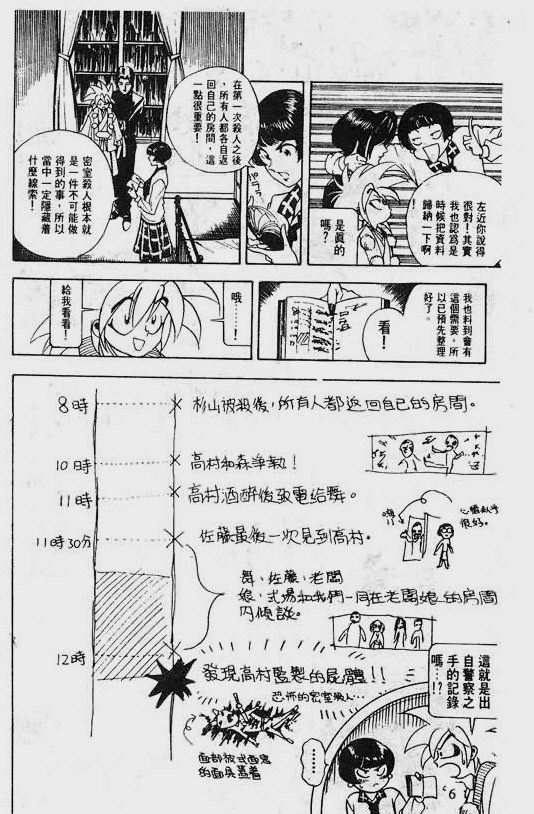 左近你說得
很對！其實
我也認爲是
時候把資料
歸納一下啊
是眞的
嗎？
在第一次殺人之後
，所有人都各自返
回自己的房間，這
一點很重要！
密室殺人根本就
是一件不可能做
得到的事，所以
當中一定隱藏着
什麼線索！
我也料到會有
這個需要，所
以已預先整理
好了。
看！
哦……！
給我看看！
8時 杉山被殺後，所有人都返回自己的房間。
10時 高村和森爭執！
11時 高村酒醉後致電給舞。
11時30分 佐藤最後一次見到高村。
很好。
舞、佐藤、老闆
娘、式場和我們一同在老闆娘的房間
內傾談。
12時
發現高村監製的屍體！！
恐怖的密室殺人…
面部被式面鬼
的面具蓋着
這就是出
自警察之
手的記錄
嗎…！？
……